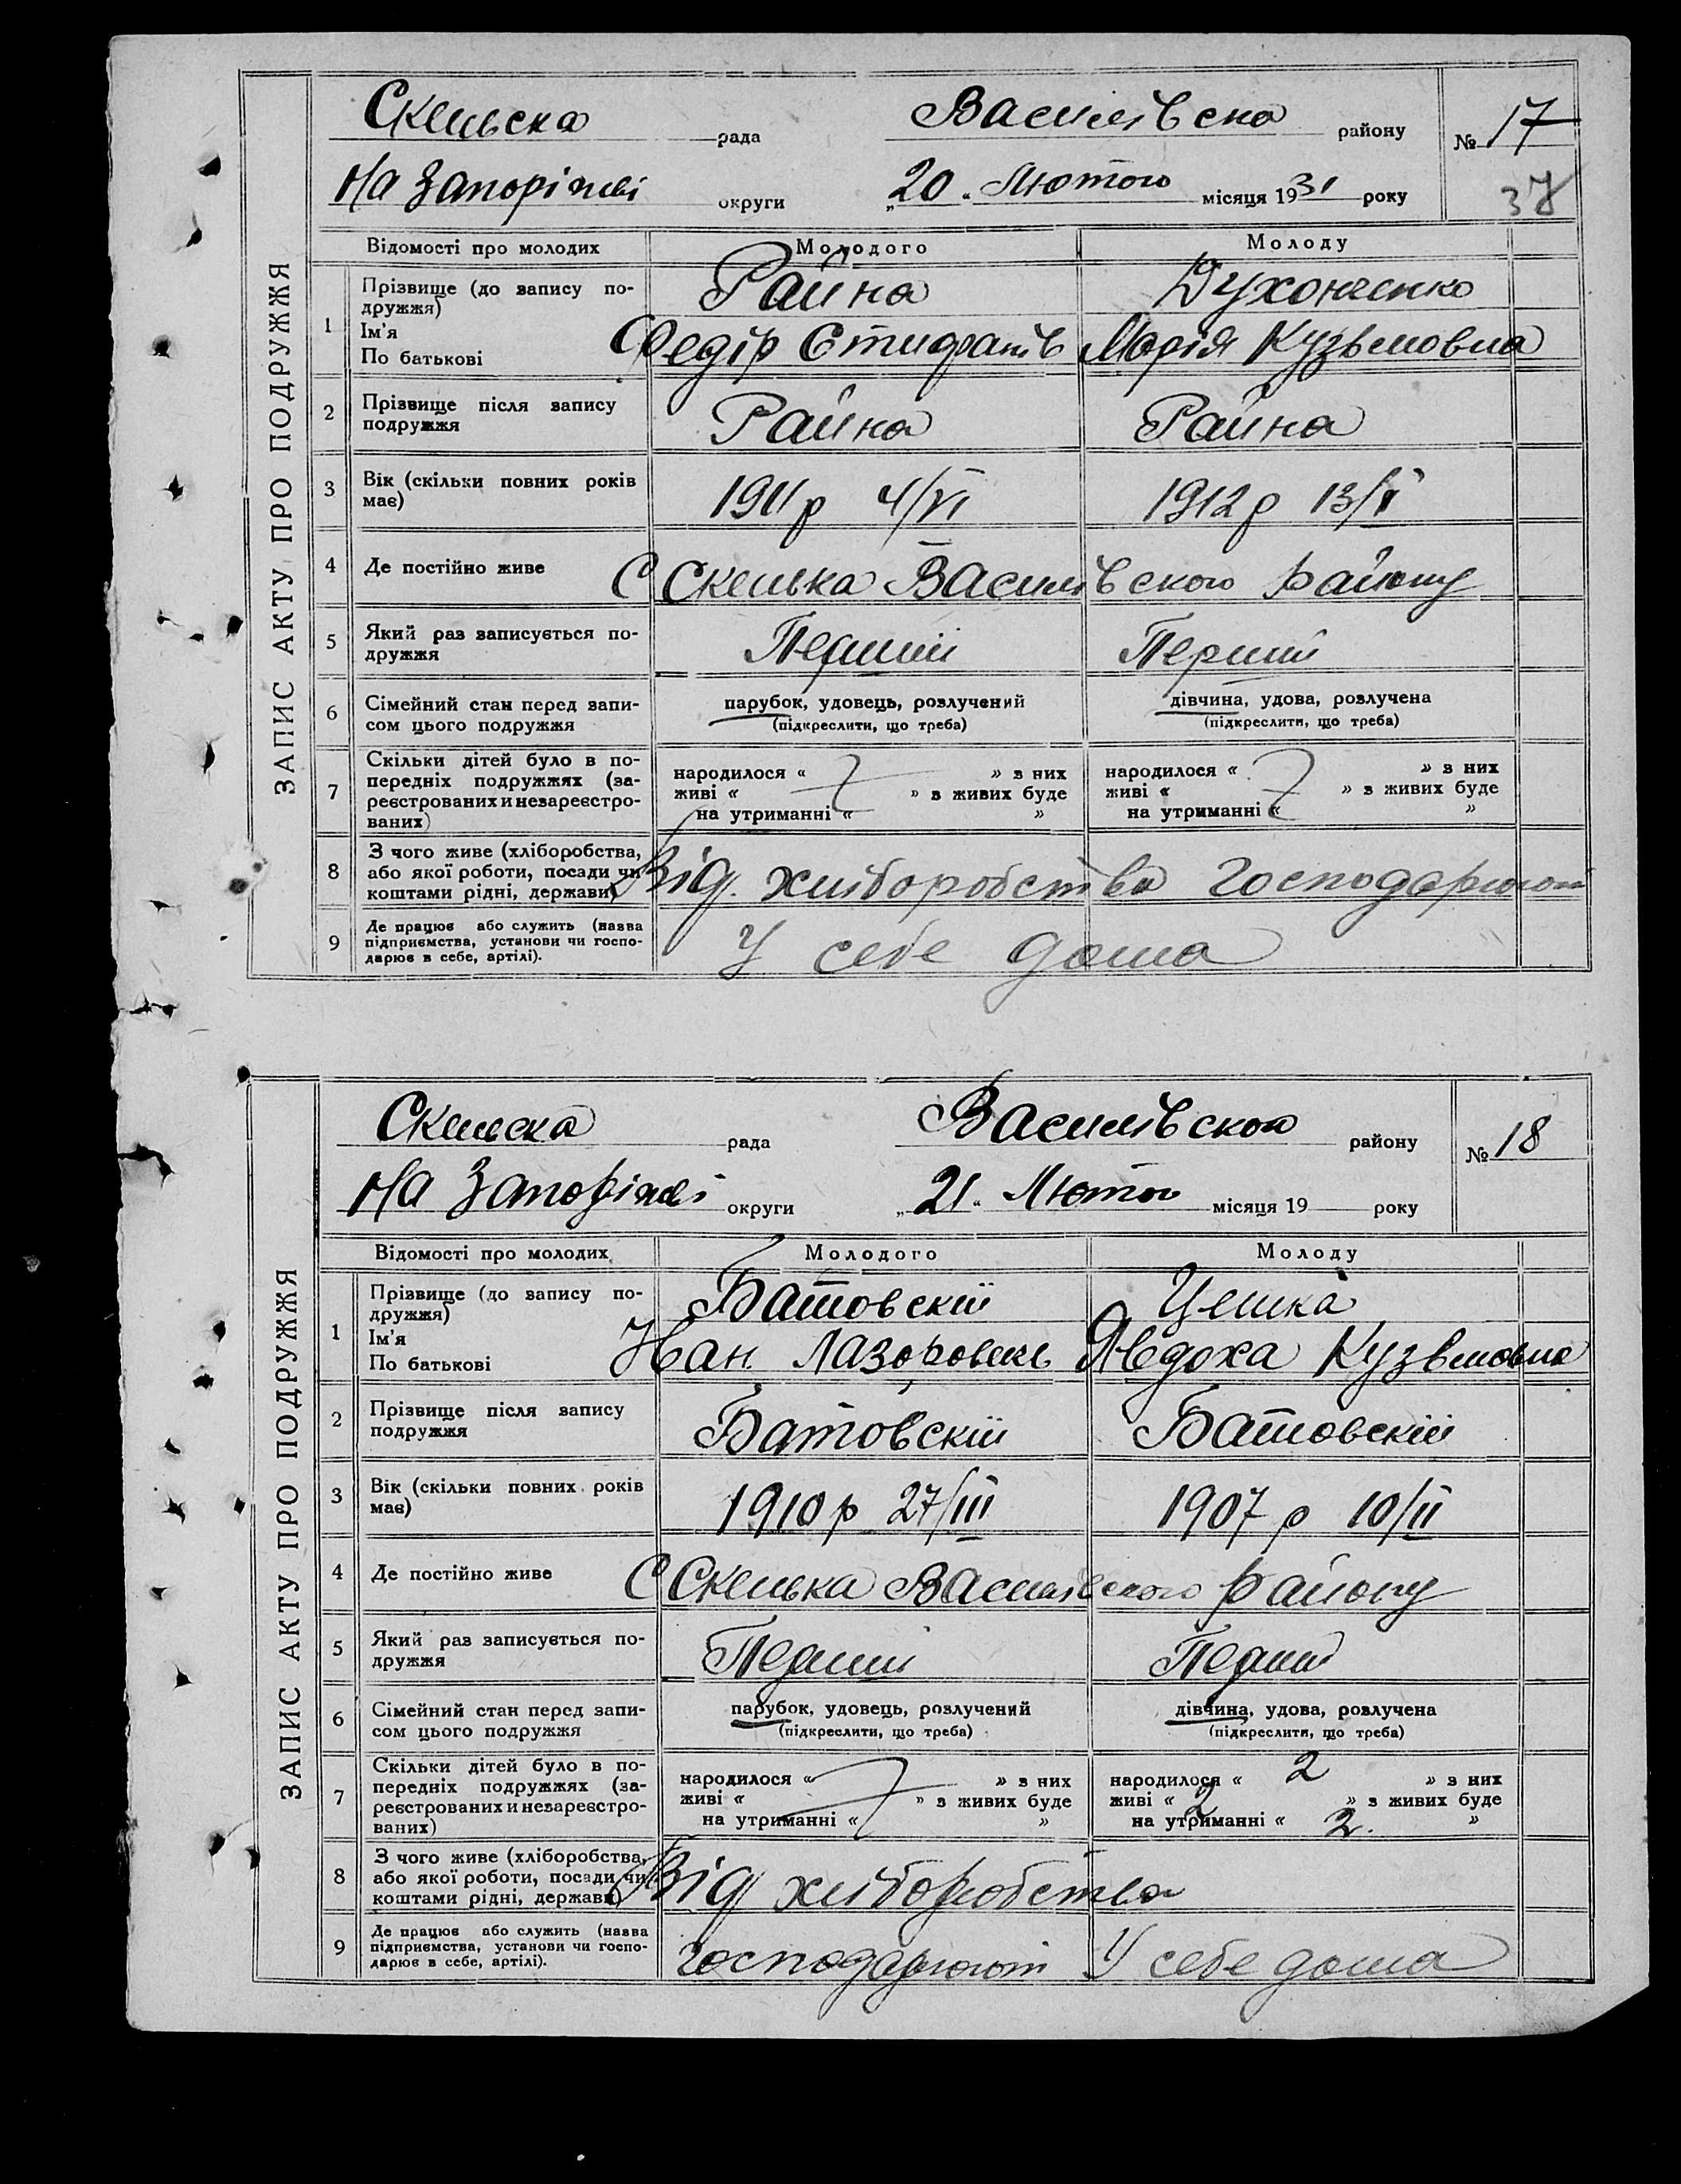 ЗАПИС АКТУ ПРО ПОДРУЖЖЯ
Скельска рада Василівска району № 17
На Запоріжжі округи „20“ Лютого місяця 1931 року 37
Відомості про молодих Молодого Молоду
1 Прізвище (до запису подружжя) Райка Духонченко
Ім'я
По батькові Федір Стифанів Марія Кузьмовна
2 Прізвище після запису подружжя Райка Райка
3 Вік (скільки повних років має) 1911 р 4/VI 1912 р 13/I
4 Де постійно живе С Скелька Василівского району
5 Який раз записується подружжя Перший Перший
6 Сімейний стан перед записом цього подружжя парубок, удовець, розлучений дівчина, удова, розлучена
(підкреслити, що треба) (підкреслити, що треба)
7 Скільки дітей було в попередніх подружжях (зареєстрованих и незареєстрованих)
народилося « » з них народилося « » з них
живі « » з живих буде живі « » з живих буде
на утриманні « » на утриманні « »
8 З чого живе (хліборобства, або якої роботи, посади чи коштами рідні, держави) Від хліборобства господарюют
9 Де працює або служить (назва підприємства, установи чи господарює в себе, артілі). У себе дома
ЗАПИС АКТУ ПРО ПОДРУЖЖЯ
Скельска рада Василівского району № 18
На Запоріжжі округи „21“ Лютого місяця 19 року
Відомості про молодих Молодого Молоду
1 Прізвище (до запису подружжя) Батовскій Цешка
Ім'я
По батькові Іван Явдоха Кузьмовна
2 Прізвище після запису подружжя Батовскій Батовскій
3 Вік (скільки повних років має) 1910 р 27/III 1907 р 10/II
4 Де постійно живе С Скелька Василівского району
5 Який раз записується подружжя Перший Перший
6 Сімейний стан перед записом цього подружжя парубок, удовець, розлучений дівчина, удова, розлучена
(підкреслити, що треба) (підкреслити, що треба)
7 Скільки дітей було в попередніх подружжях (зареєстрованих и незареєстрованих)
народилося « » з них народилося « 2 » з них
живі « » з живих буде живі « 2 » з живих буде
на утриманні « » на утриманні « 2. »
8 З чого живе (хліборобства, або якої роботи, посади чи коштами рідні, держави) Від хліборобства
9 Де працює або служить (назва підприємства, установи чи господарює в себе, артілі). господарюют У себе дома